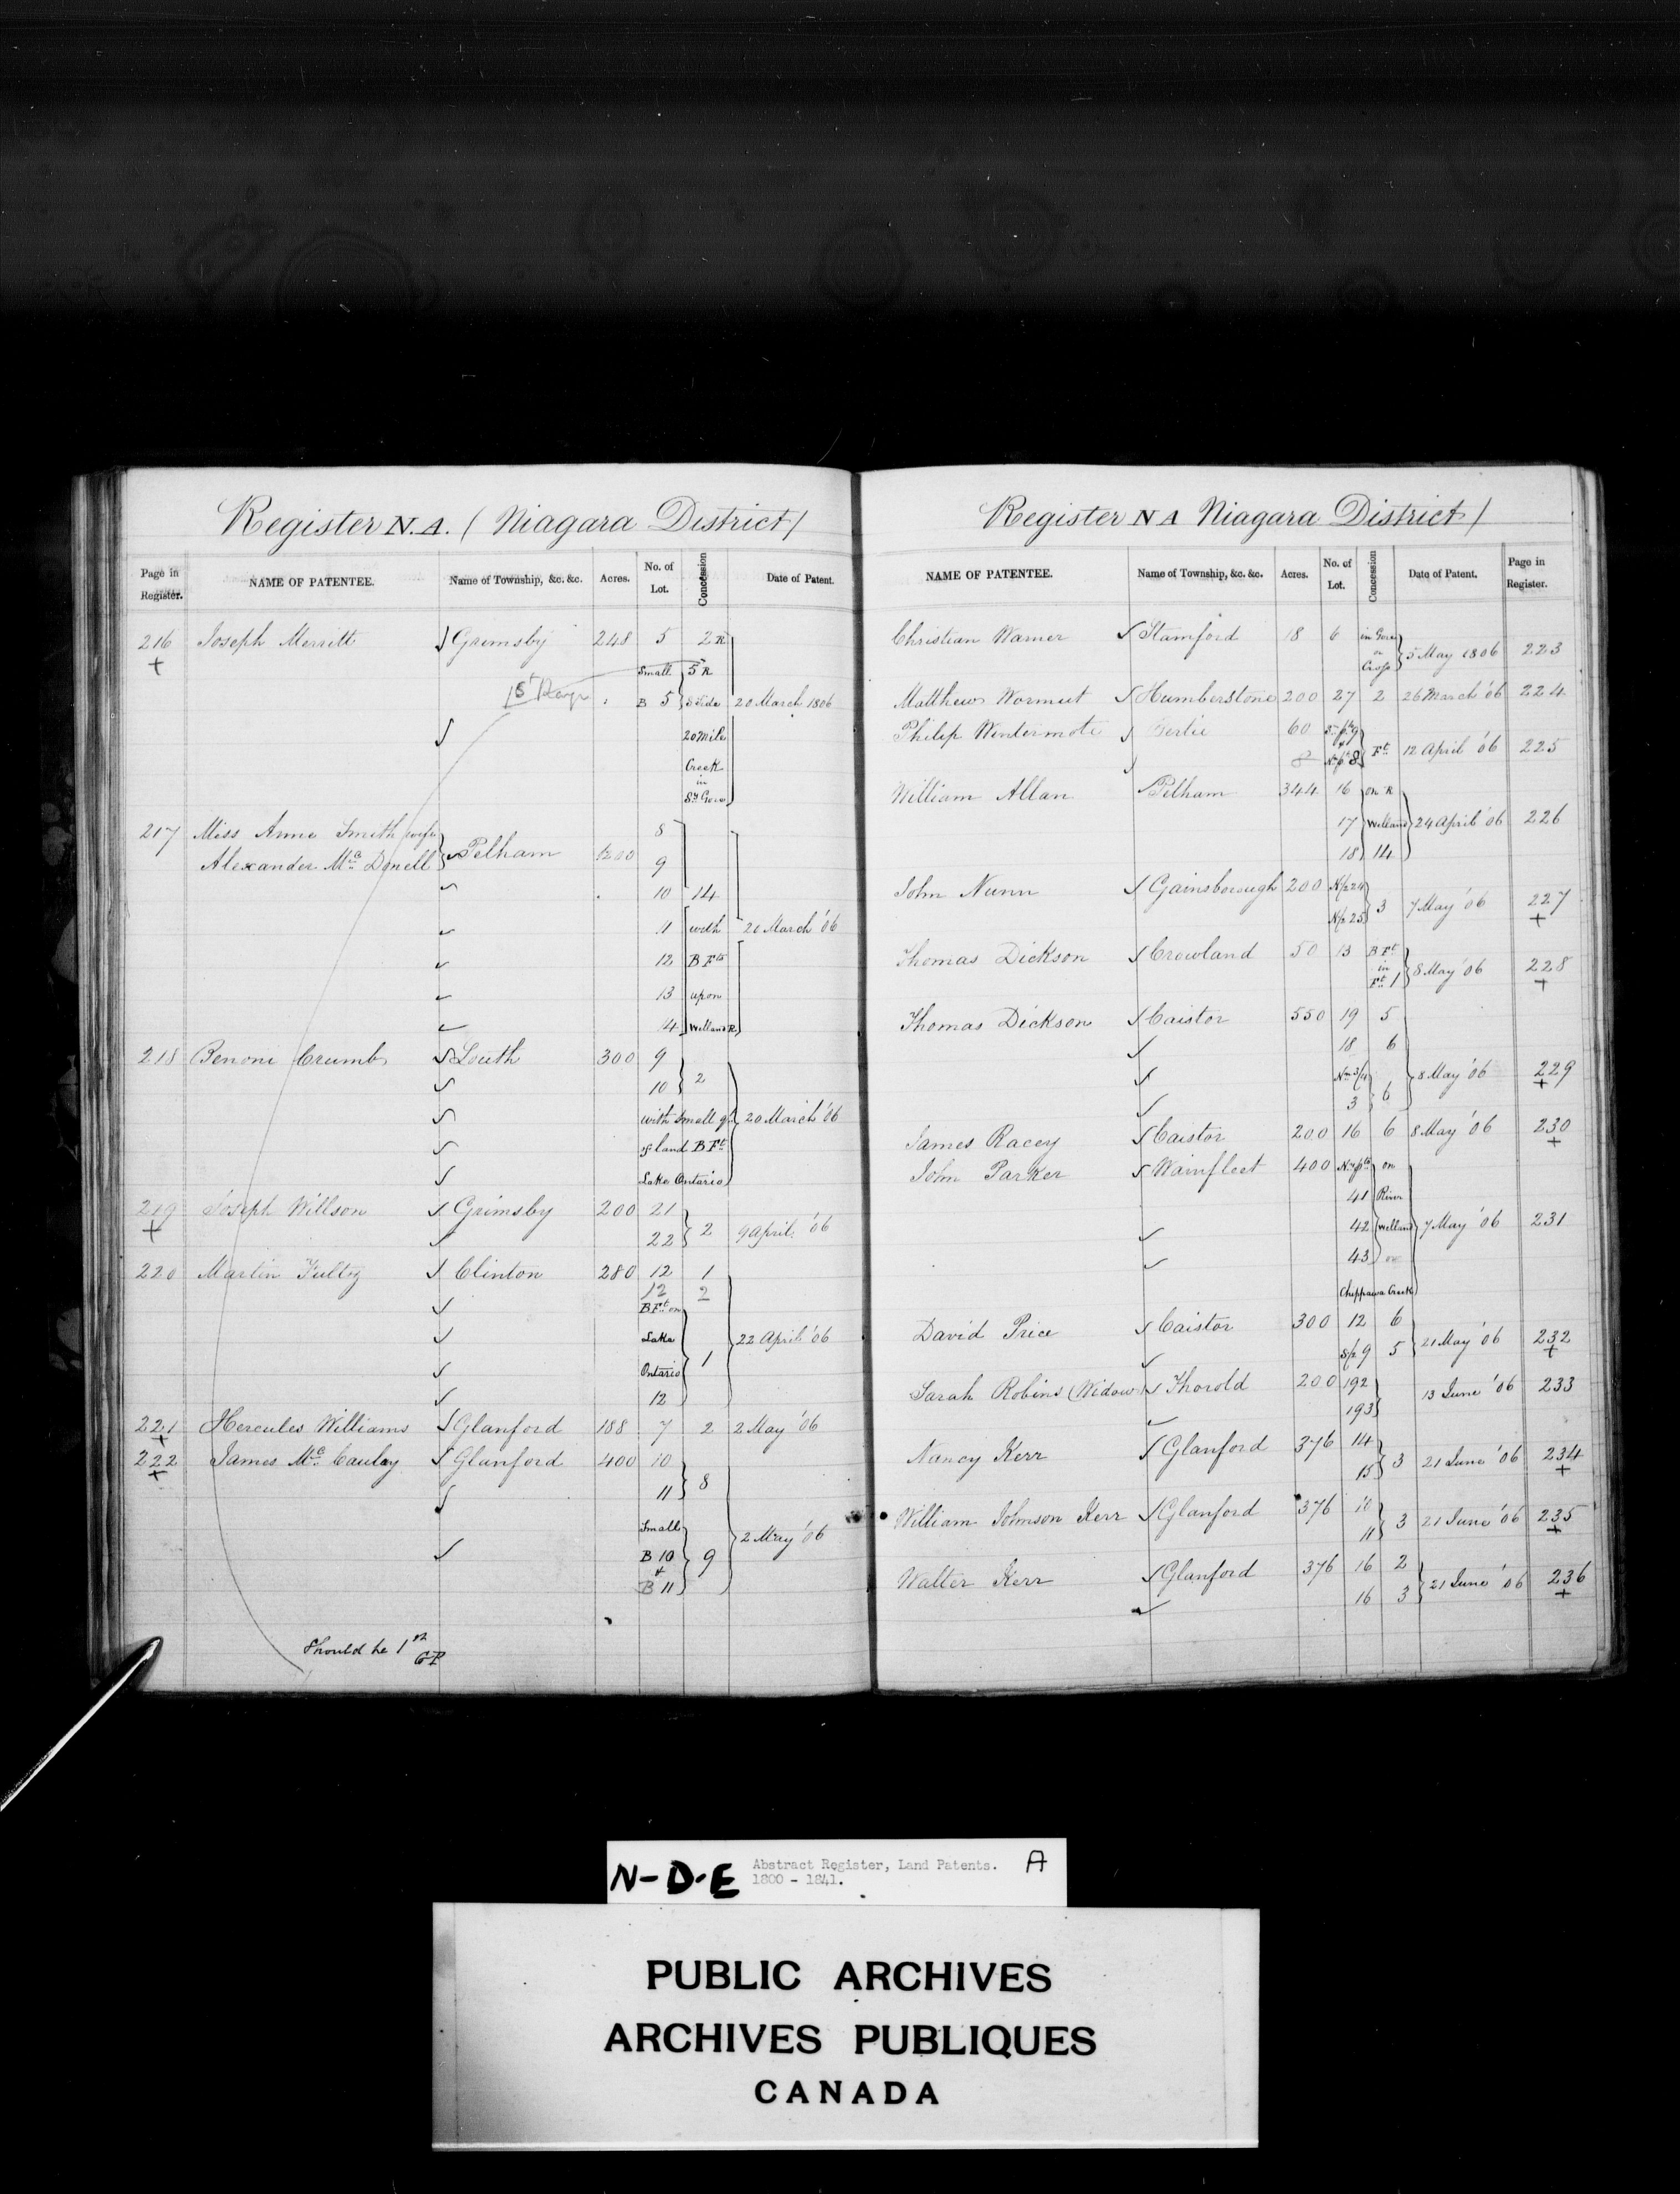 Register N.A. ( Niagara District )
Page in Register. NAME OF PATENTEE. Name of Township, &c. &c. Acres. No. of Lot. Concession Date of Patent.
216 Joseph Merritt Grimsby 248 5 2 R
Small 5 R
B 5 S Side 20 March 1806
20 Mile
Creek
in
Sy Gore
217 Miss Anne Smith wife 8
Alexander Mc Donell Pelham 1200 9
10 14
11 with 20 March '06
12 B Fts
13 upon
14 Welland R
218 Benoni Crumb Louth 300 9
10 2
with Small qy 20 March '06
of land B Ft
Lake Ontario
219 Joseph Willson Grimsby 200 21
22 2 9 April '06
220 Martin Fultz Clinton 280 12 1
12 2
B Ft on
Lake 22 April '06
Ontario 1
12
221 Hercules Williams Glanford 188 7 2 2 May '06
222 James Mc Cauley Glanford 400 10
11 8
Small 2 May '06
B 10 9
+
B 11
Should be 1st
Register N A Niagara District )
NAME OF PATENTEE. Name of Township, &c. &c. Acres. No. of Lot. Concession Date of Patent. Page in Register.
Christian Warner Stamford 18 6 in Gore
or 5 May 1806 223
Matthew Wormut Humberstone 200 27 2 26 March '06 224
Philip Wintermote Bertie 60
8 Ft 12 April '06 225
William Allan Pelham 344 16 on R
17 Welland 24 April '06 226
18 14
John Nunn Gainsborough 200 N/2 24
N/2 25 3 7 May '06 227
Thomas Dickson Crowland 50 13 B Ft
in 8 May '06 228
Ft 1
Thomas Dickson Caistor 550 19 5
18 6
8 May '06 229
3 6
James Racey Caistor 200 16 6 8 May '06 230
John Parker Wainfleet 400 Ny pts on
41 River
42 Welland 7 May '06 231
43 or
Chippawa Creek
David Price Caistor 300 12 6
S/2 9 5 21 May '06 232
Sarah Robins (Widow) Thorold 200 192 13 June '06 233
193
Nancy Kerr Glanford 376 14
15 3 21 June '06 234
William Johnson Kerr Glanford 376 10
11 3 21 June '06 235
Walter Kerr Glanford 376 16 2
16 3 21 June '06 236
N-D-E Abstract Register, Land Patents. A
1800 - 1841.
PUBLIC ARCHIVES
ARCHIVES PUBLIQUES
CANADA